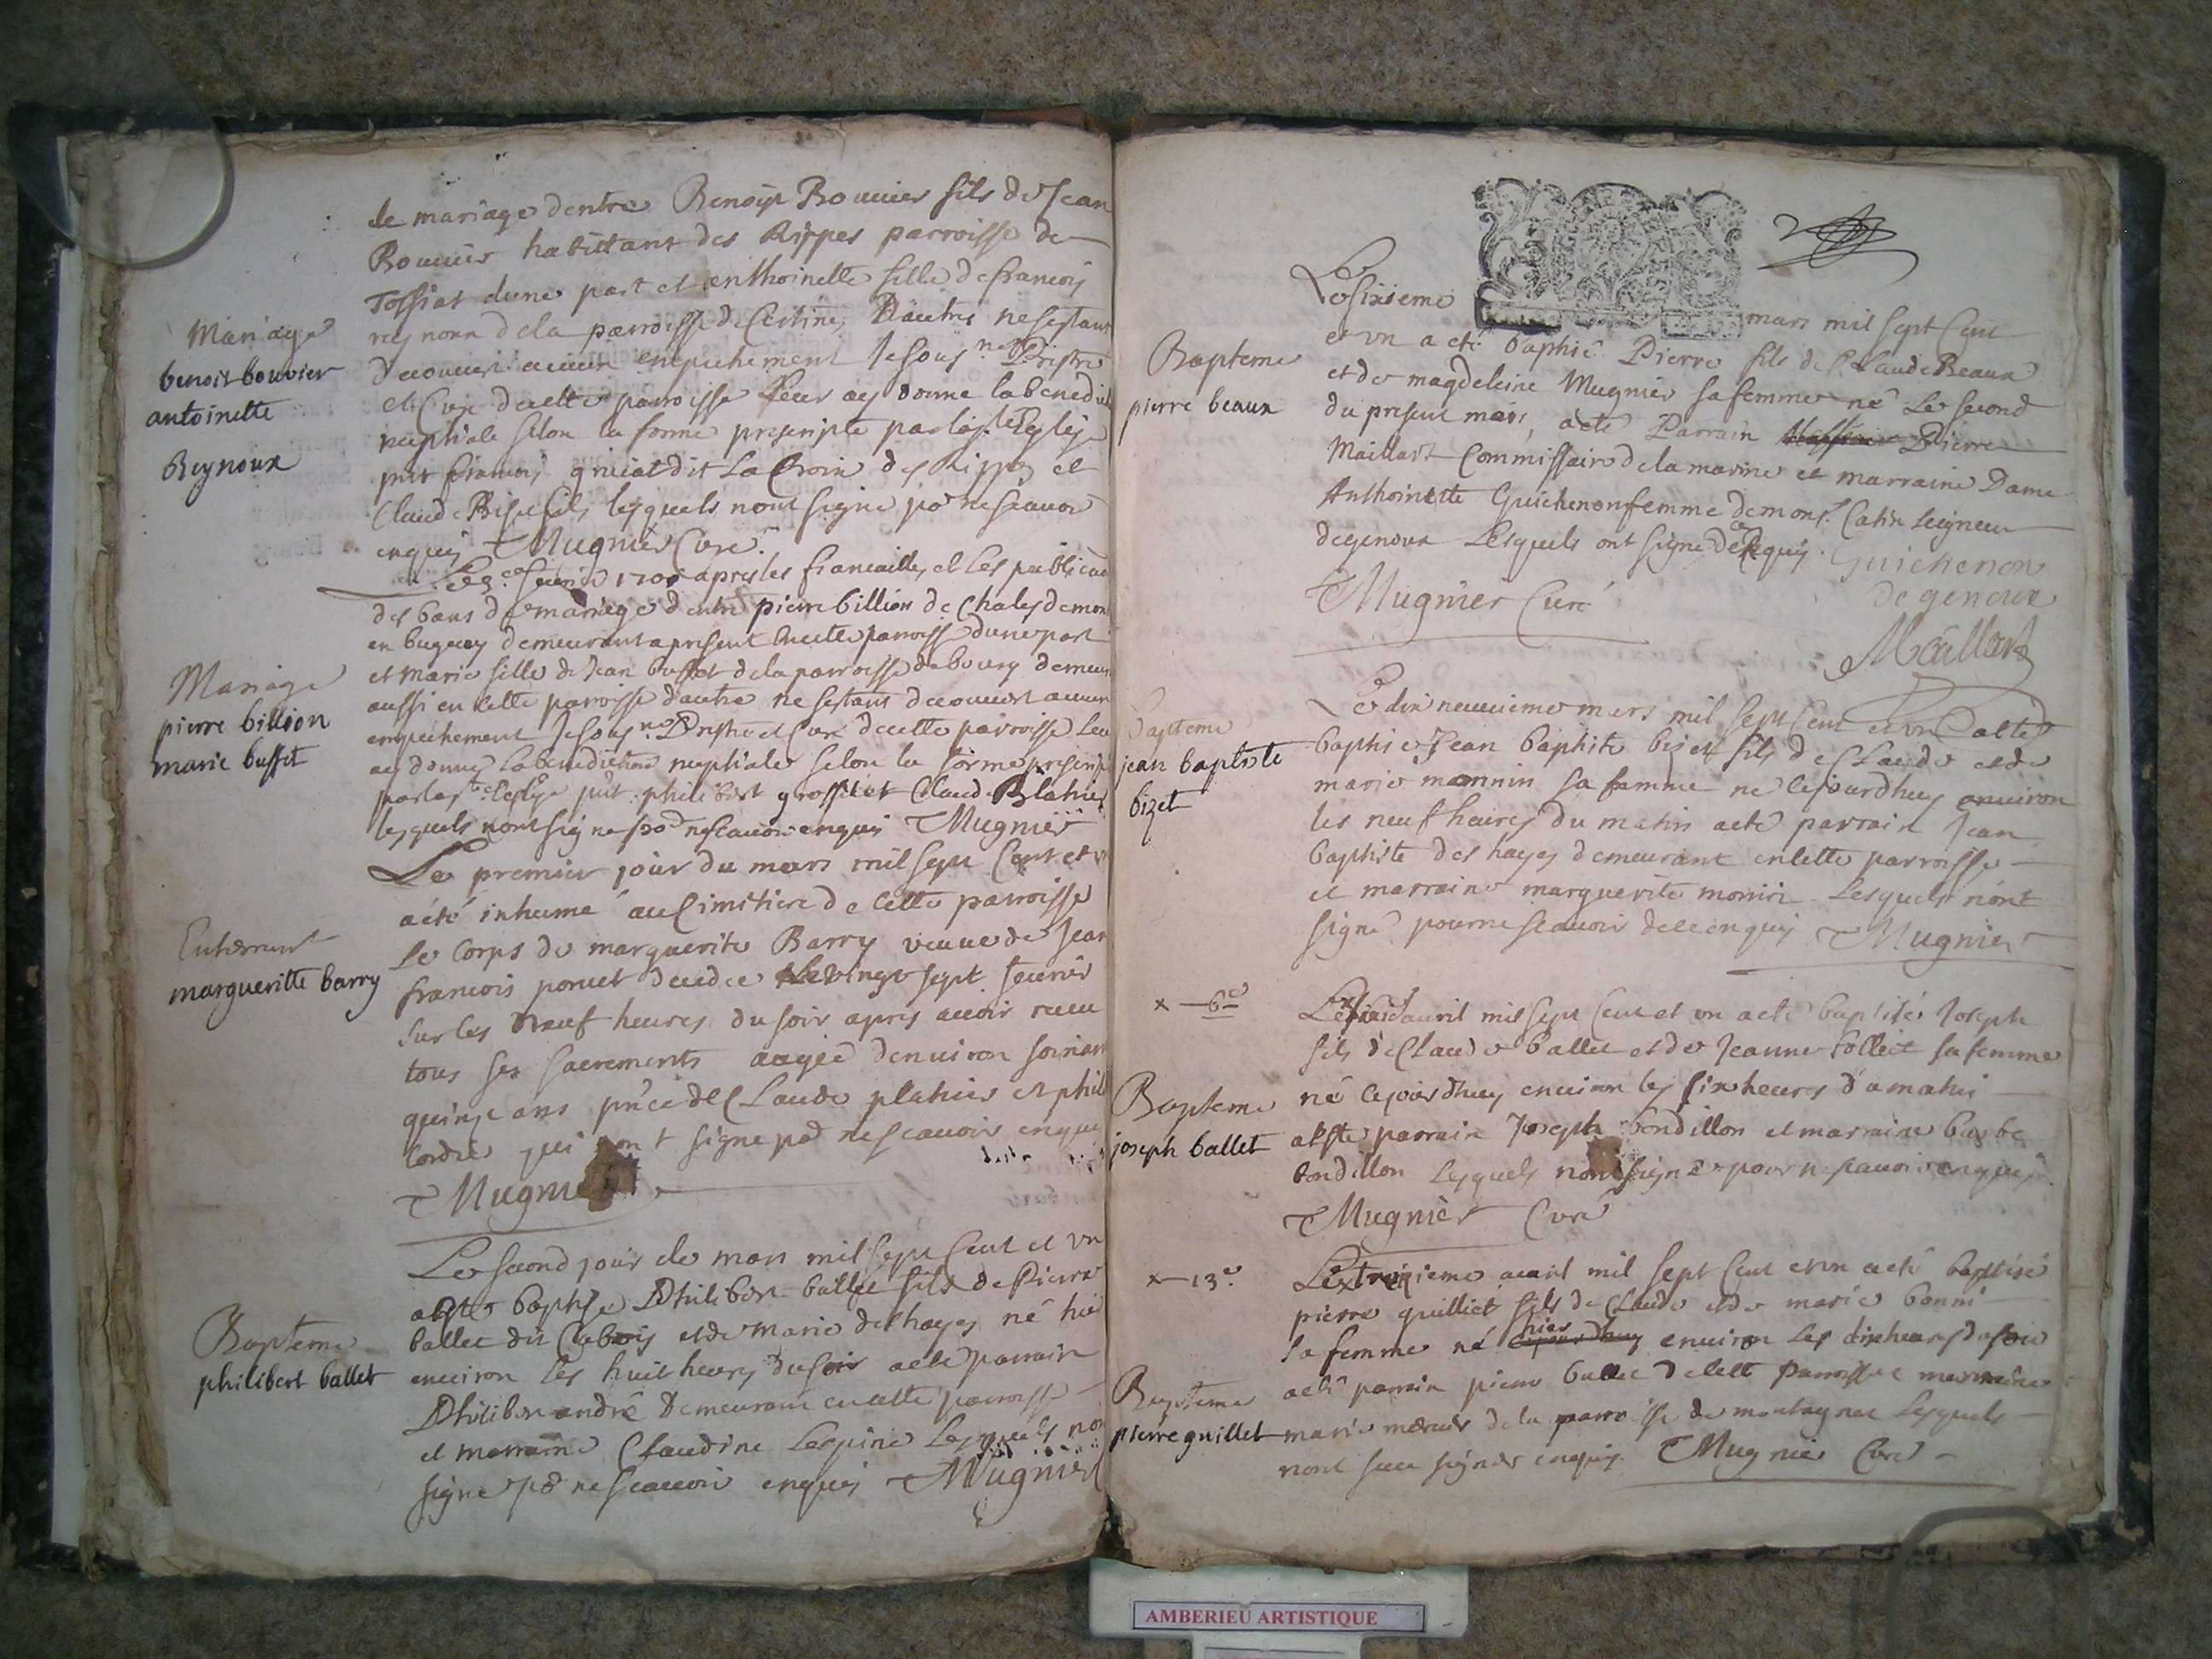 le mariage dentre Benoist Bouvier fils de Jean
Bouvier habitant des Rippes parroisse de
Tossiat dune part et anthoinette fille de francois
reynoux dela parroisse de Certines Dautre ne sestant
decouvert aucun empechement Je sousne Prestre
et Cure decette parroisse leur ay donne la bened
nuptiale selon la forme prescripte par la ste Eglise
pnt francois dit La Croix des Rippes et
Claude fils lesquels nont signe po ne scavoir
enquis Mugnier Cure
Mariage
benoist bouvier
antoinette
Reynoux
Le fevrie 1701 apres les fiancailles et les publicaō
des bans de mariage dentre pierre billion de Chaley
en bugey demeurant apresent en cette parroisse dune part
et marie fille de Jean buffet de la parroisse de bourg demeur
aussi en cette parroisse dautre ne sestant decouvert aucun
empechement Je sousne Prestre et Cure decette parroisse leu
ay donne la benediction nuptiale selon la forme prescrip
par la ste eglise pnt philibert et Claude
lesquels nont signe po ne scavoir enquis Mugnier
Mariage
pierre billion
marie buffet
Le premier jour du mars mil sept Cent et v
a été inhumé au Cimitiere de cette parroisse
le Corps de marguerite Barry veuve de Jean
francois decedee le vingt sept fevrier
sur les Neuf heures du soir apres avoir receu
tous ses sacrements aagée denviron soixan
quinze ans pnce de Claude platier et phil
qui nont signe po ne scavoir enqui
Mugnier
Enterrement
margueritte barry
Le second jour de mars mil sept Cent et un
a esté baptise Philibert ballet fils de Pierre
ballet dit et de marie deshayes né hie
environ les huit heures du soir a ete parrain
Philibert andré demeurant en cette parroisse
et marraine Claudine Lespine lesquels no
signe po ne scavoir enquis Mugnier
Bapteme
philibert ballet
Le sixieme mars mil sept Cent
et un a eté baptisé Pierre fils de Claude Beaux
et de magdeleine Mugnier sa femme né le second
du present mois, a eté Parrain Pierre
Maillart Commissaire de la marine et marraine Dame
Anthoinette Guichenon femme de monsr Catin seigneur
de genoux Lesquels ont signe de ce enquis Guichenon
Mugnier Curé de genoux
Maillart
Bapteme
pierre beaux
Le dix neuvieme mars mil sept Cent et un a eté
baptisé Jean baptiste bizet fils de Claude et de
marie monnin sa femme ne cejourdhuy environ
les neuf heures du matin a eté parrain Jean
baptiste des hayes demeurant en cette parroisse
et marraine marguerite monin Lesquels nont
signé pour ne scavoir de ce enquis Mugnier
Bapteme
jean baptiste
bizet
x — 6e
Le six avril mil sept Cent et un a eté baptisé Joseph
fils de Claude ballet et de Jeanne Collet sa femme
né cejourdhuy environ les six heures du matin
a esté parrain Joseph bondillon et marraine barbe
bondillon Lesquels nont signé pour ne scavoir enquis
Mugnier Curé
Bapteme
joseph ballet
x — 13e
Le treizieme avril mil sept Cent et un a eté baptisé
pierre guilliet fils de Claude et de marie bonni
sa femme né hier environ les dix heures du soir
a eté parrain pierre ballet de cette Parroisse et marraine
marie mercier dela parroisse de montagnat Lesquels
nont sceu signer enquis Mugnier Curé
Bapteme
pierre guillet
AMBERIEU ARTISTIQUE